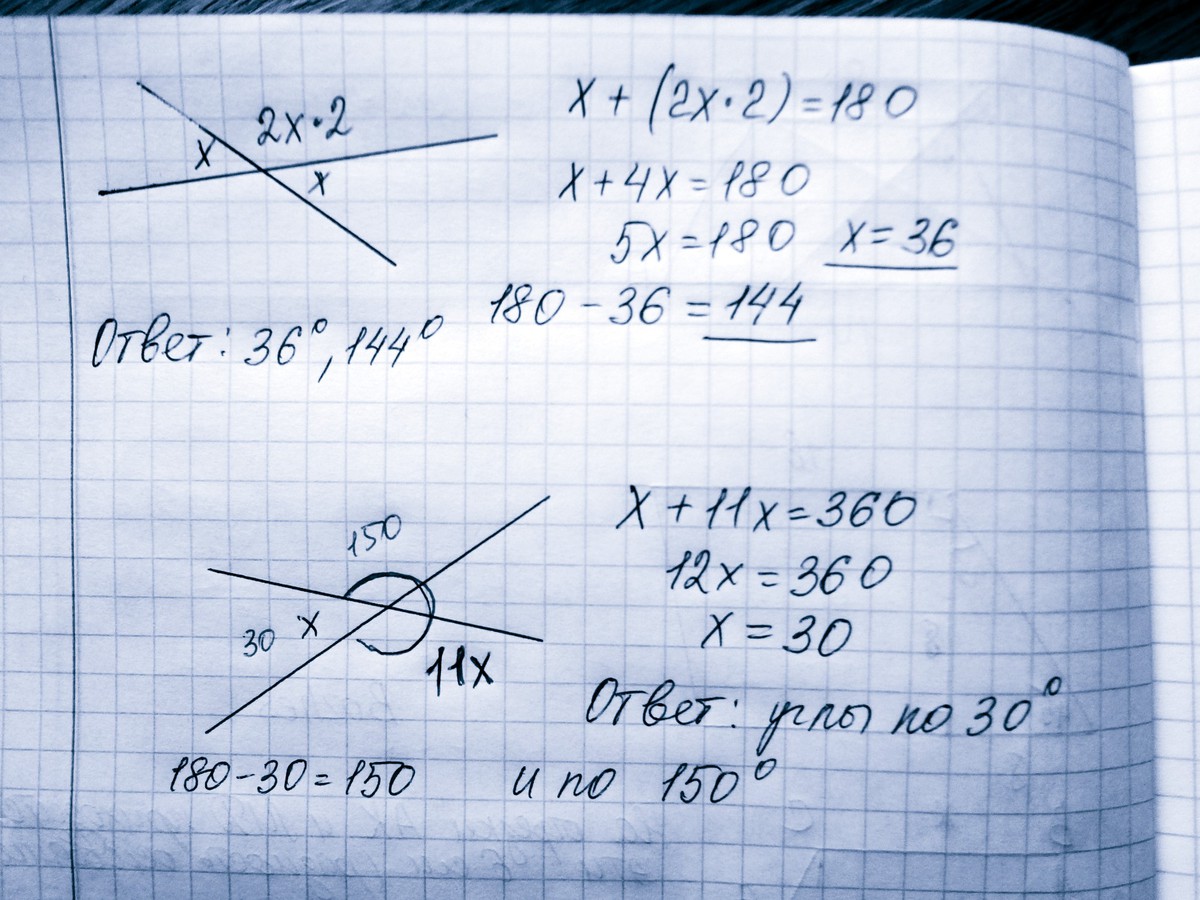 2x·2
x
x
x + (2x·2) = 180
x + 4x = 180
5x = 180 x = 36
180 - 36 = 144
Ответ: 36°, 144°
150
30 x
11x
x + 11x = 360
12x = 360
x = 30
Ответ: углы по 30°
180-30=150 и по 150°